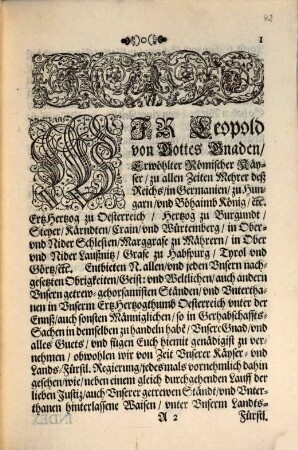 42
1
WIR Leopold
von Gottes Gnaden/
Erwöhlter Römischer Käy-
ser / zu allen Zeiten Mehrer deß
Reichs / in Germanien / zu Hun-
garn / und Böhaimb König / ꝛc.
Ertz Hertzog zu Oesterreich / Hertzog zu Burgundt /
Steyer / Kärndten / Crain / und Würtemberg / in Ober-
und Nider Schlesien / Marggrafe zu Mährern / in Ober
und Nider Laußnitz / Grafe zu Habspurg / Tyrol und
Görtz / ꝛc. Entbieten N. allen / und jeden Unsern nach-
gesetzten Obrigkeiten / Geist: und Weltlichen / auch andern
Unsern getrew-gehorsamisten Ständen / und Vnterha-
nen in Unserm Ertz Hertzogthumb Oesterreich vnter der
Ennß / auch sonsten Männiglichen / so in Gerhabschaffts-
Sachen in demselben zu handeln habē / Vnsere Gnad / und
alles Guets / und fügen Euch hiemit genädigist zu ver-
nehmen / obwohlen wir von Zeit Vnserer Käyser- und
Lands-Fürstl. Regierung / jedesmals vornehmlich dahin
gesehen / wie / neben einem gleich durchgehenden Lauff der
lieben Justiz / auch Unserer getrewen Ständt / und Vnter-
thanen hinterlassene Waisen / vnter Vnserm Landts-
A 2 Fürstl.